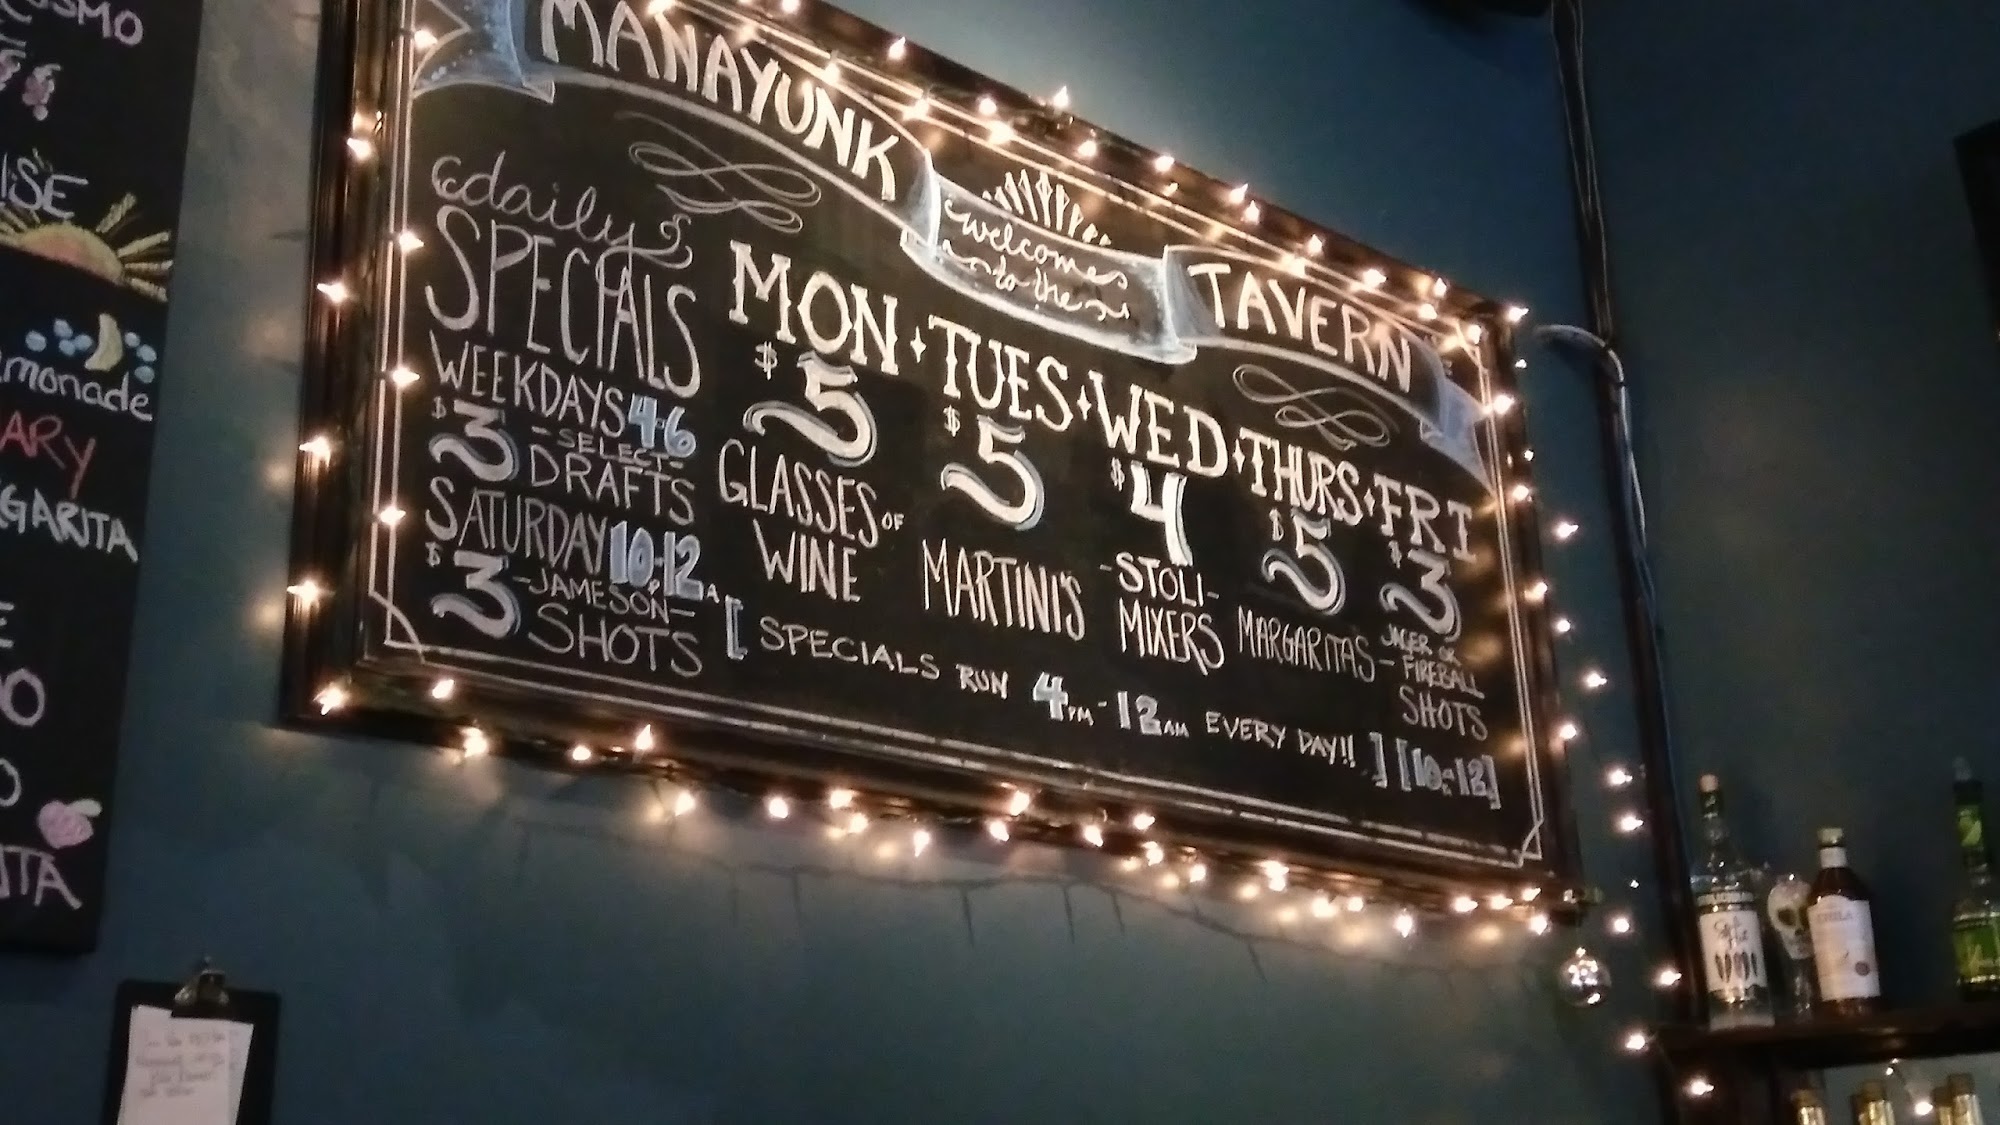 OSMO
ISE
monade
ARY
GARITA
E
O
O
ITA
MANAYUNK
welcomes
to the
TAVERN
daily
SPECIALS
WEEKDAYS 4-6
$3 -SELECT-
DRAFTS
SATURDAY 10P-12A
$3 -JAMESON-
SHOTS
MON + TUES + WED + THURS + FRI
$5
GLASSES OF
WINE
$5
MARTINI'S
$4
-STOLI-
MIXERS
$5
MARGARITAS
$3
JAGER OR
-FIREBALL
SHOTS
[SPECIALS RUN 4PM-12AM EVERY DAY!!] [10-12]